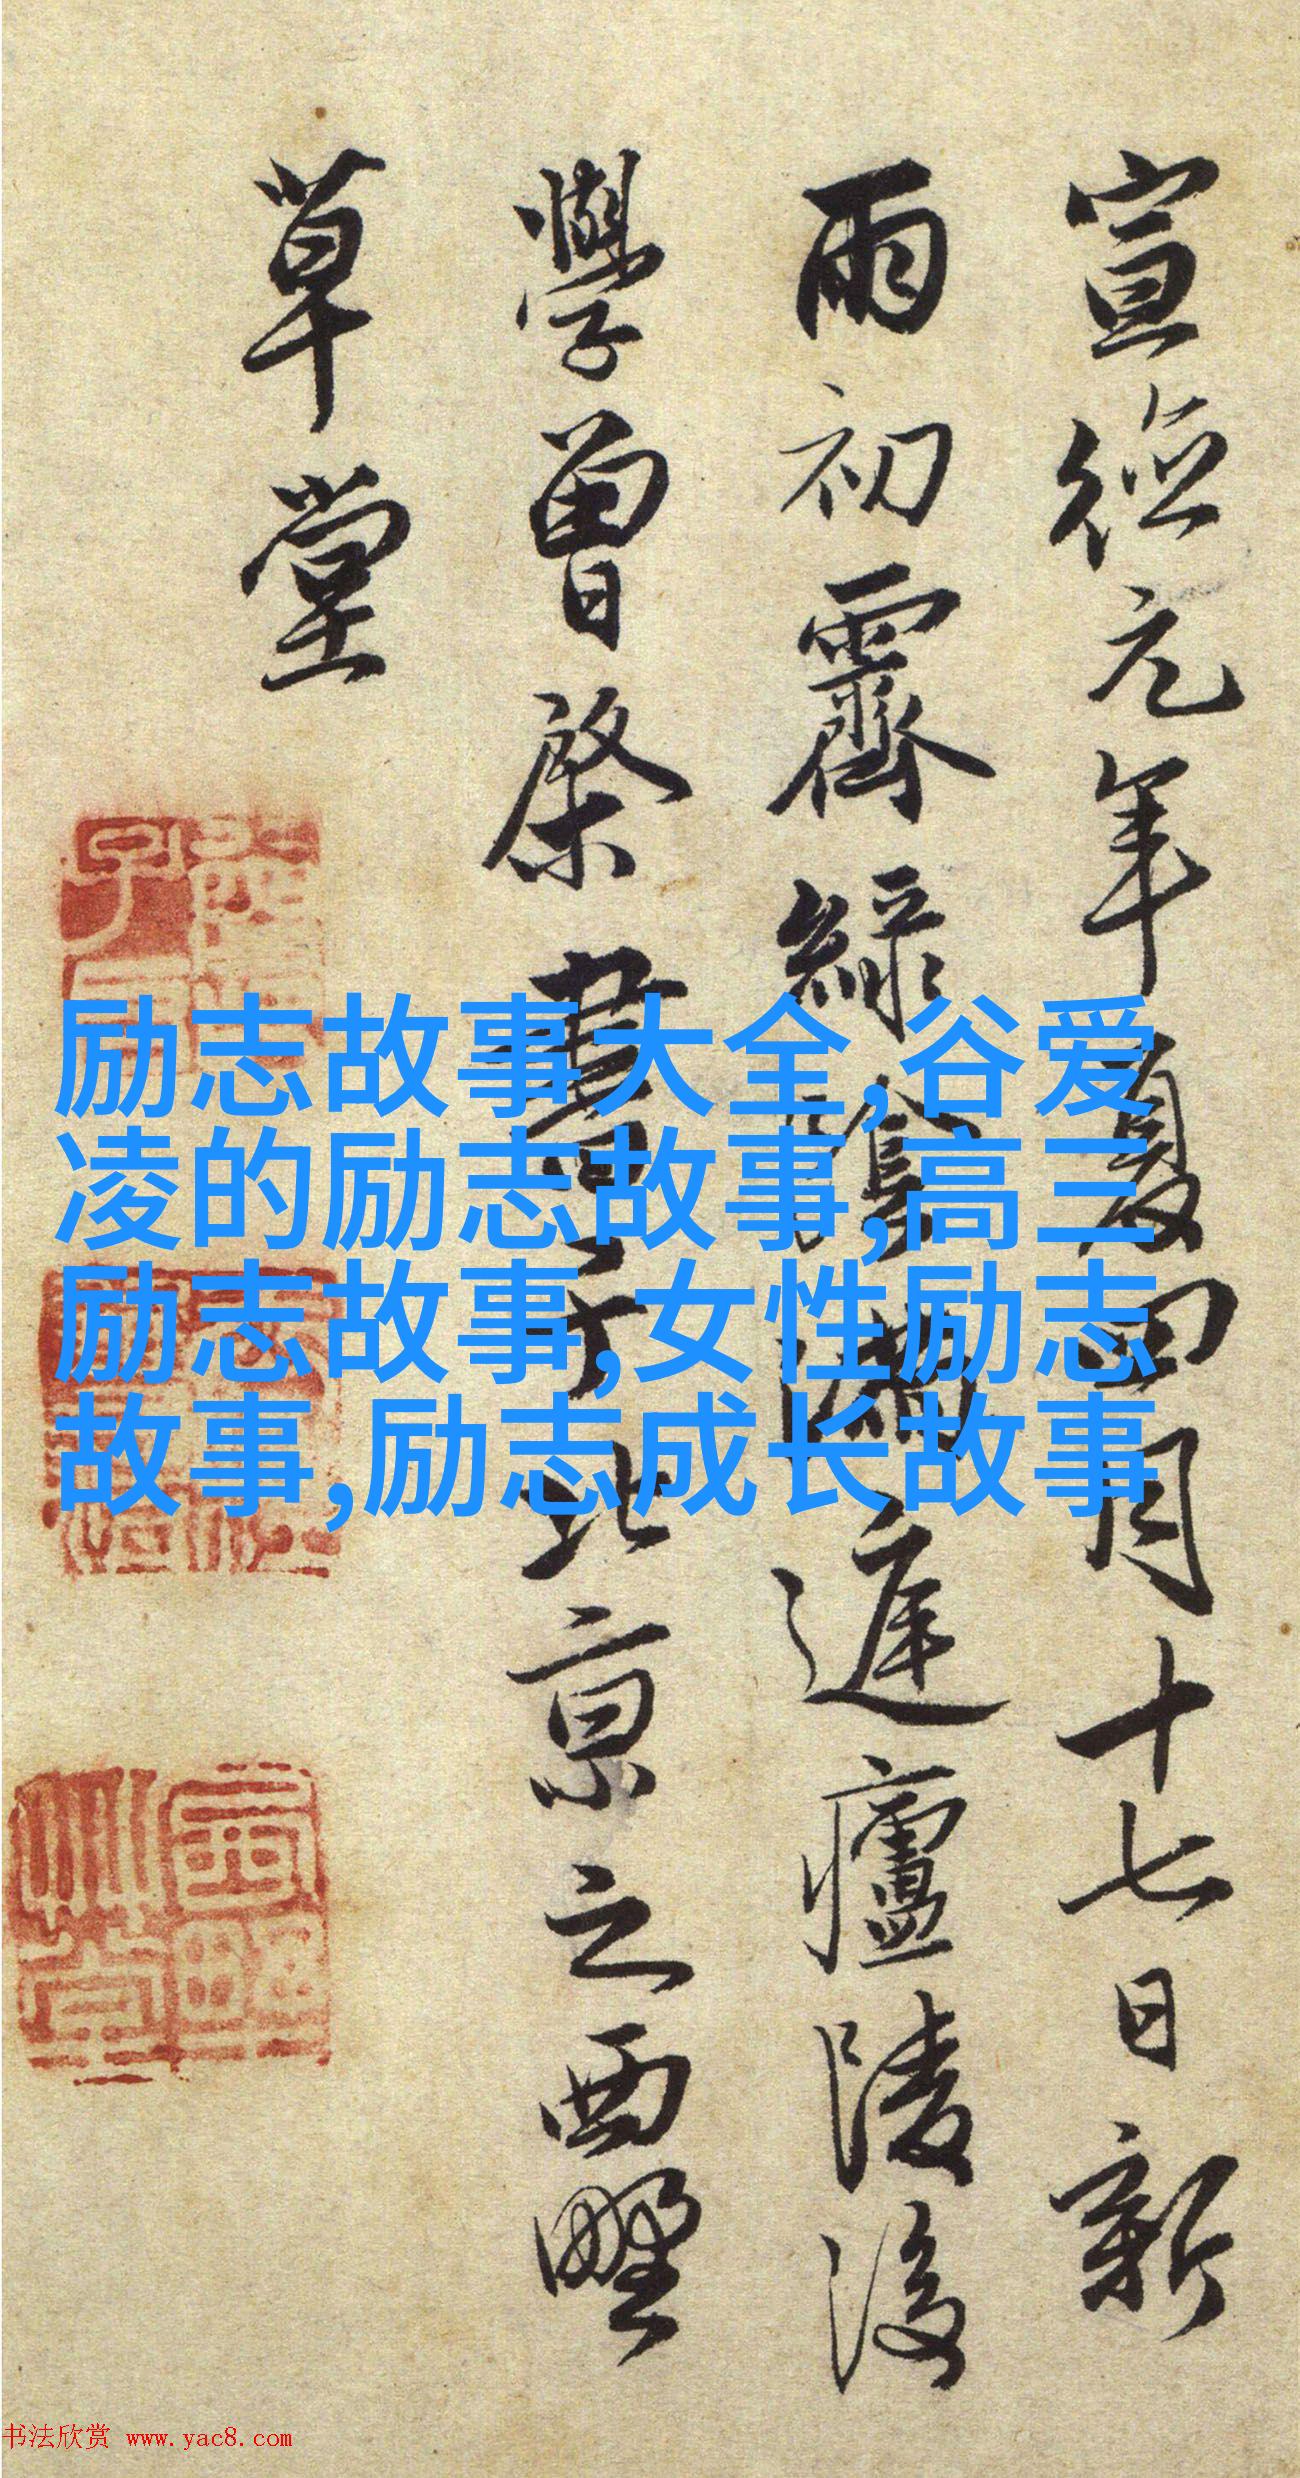 宣德元年夏四月十七日新
雨初霽綠陰滿庭廬陵後
學曾棨書于北京之西墅
草堂
励志故事大全,谷爱
凌的励志故事,高三
励志故事,女性励志
故事,励志成长故事
书法欣赏 www.yac8.com